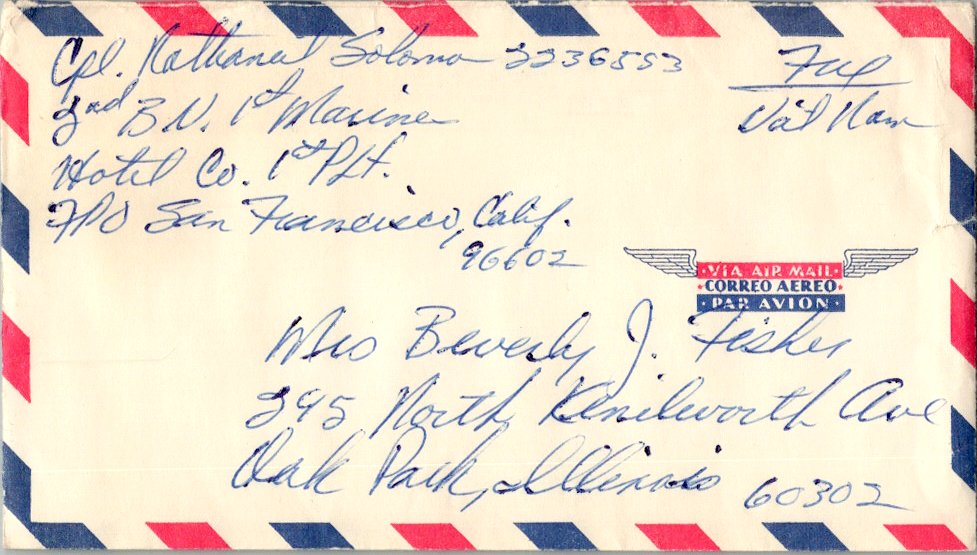 Cpl. Nathanal Soloma 2236553
2nd B.N. 1st Marine
Hotel Co. 1st Plt.
FPO San Francisco, Calif.
96602
Free
Viet Nam
VIA AIR MAIL
CORREO AEREO
PAR AVION
Mrs Beverly J. Fisher
295 North Kenilworth Ave
Oak Park, Illinois 60302